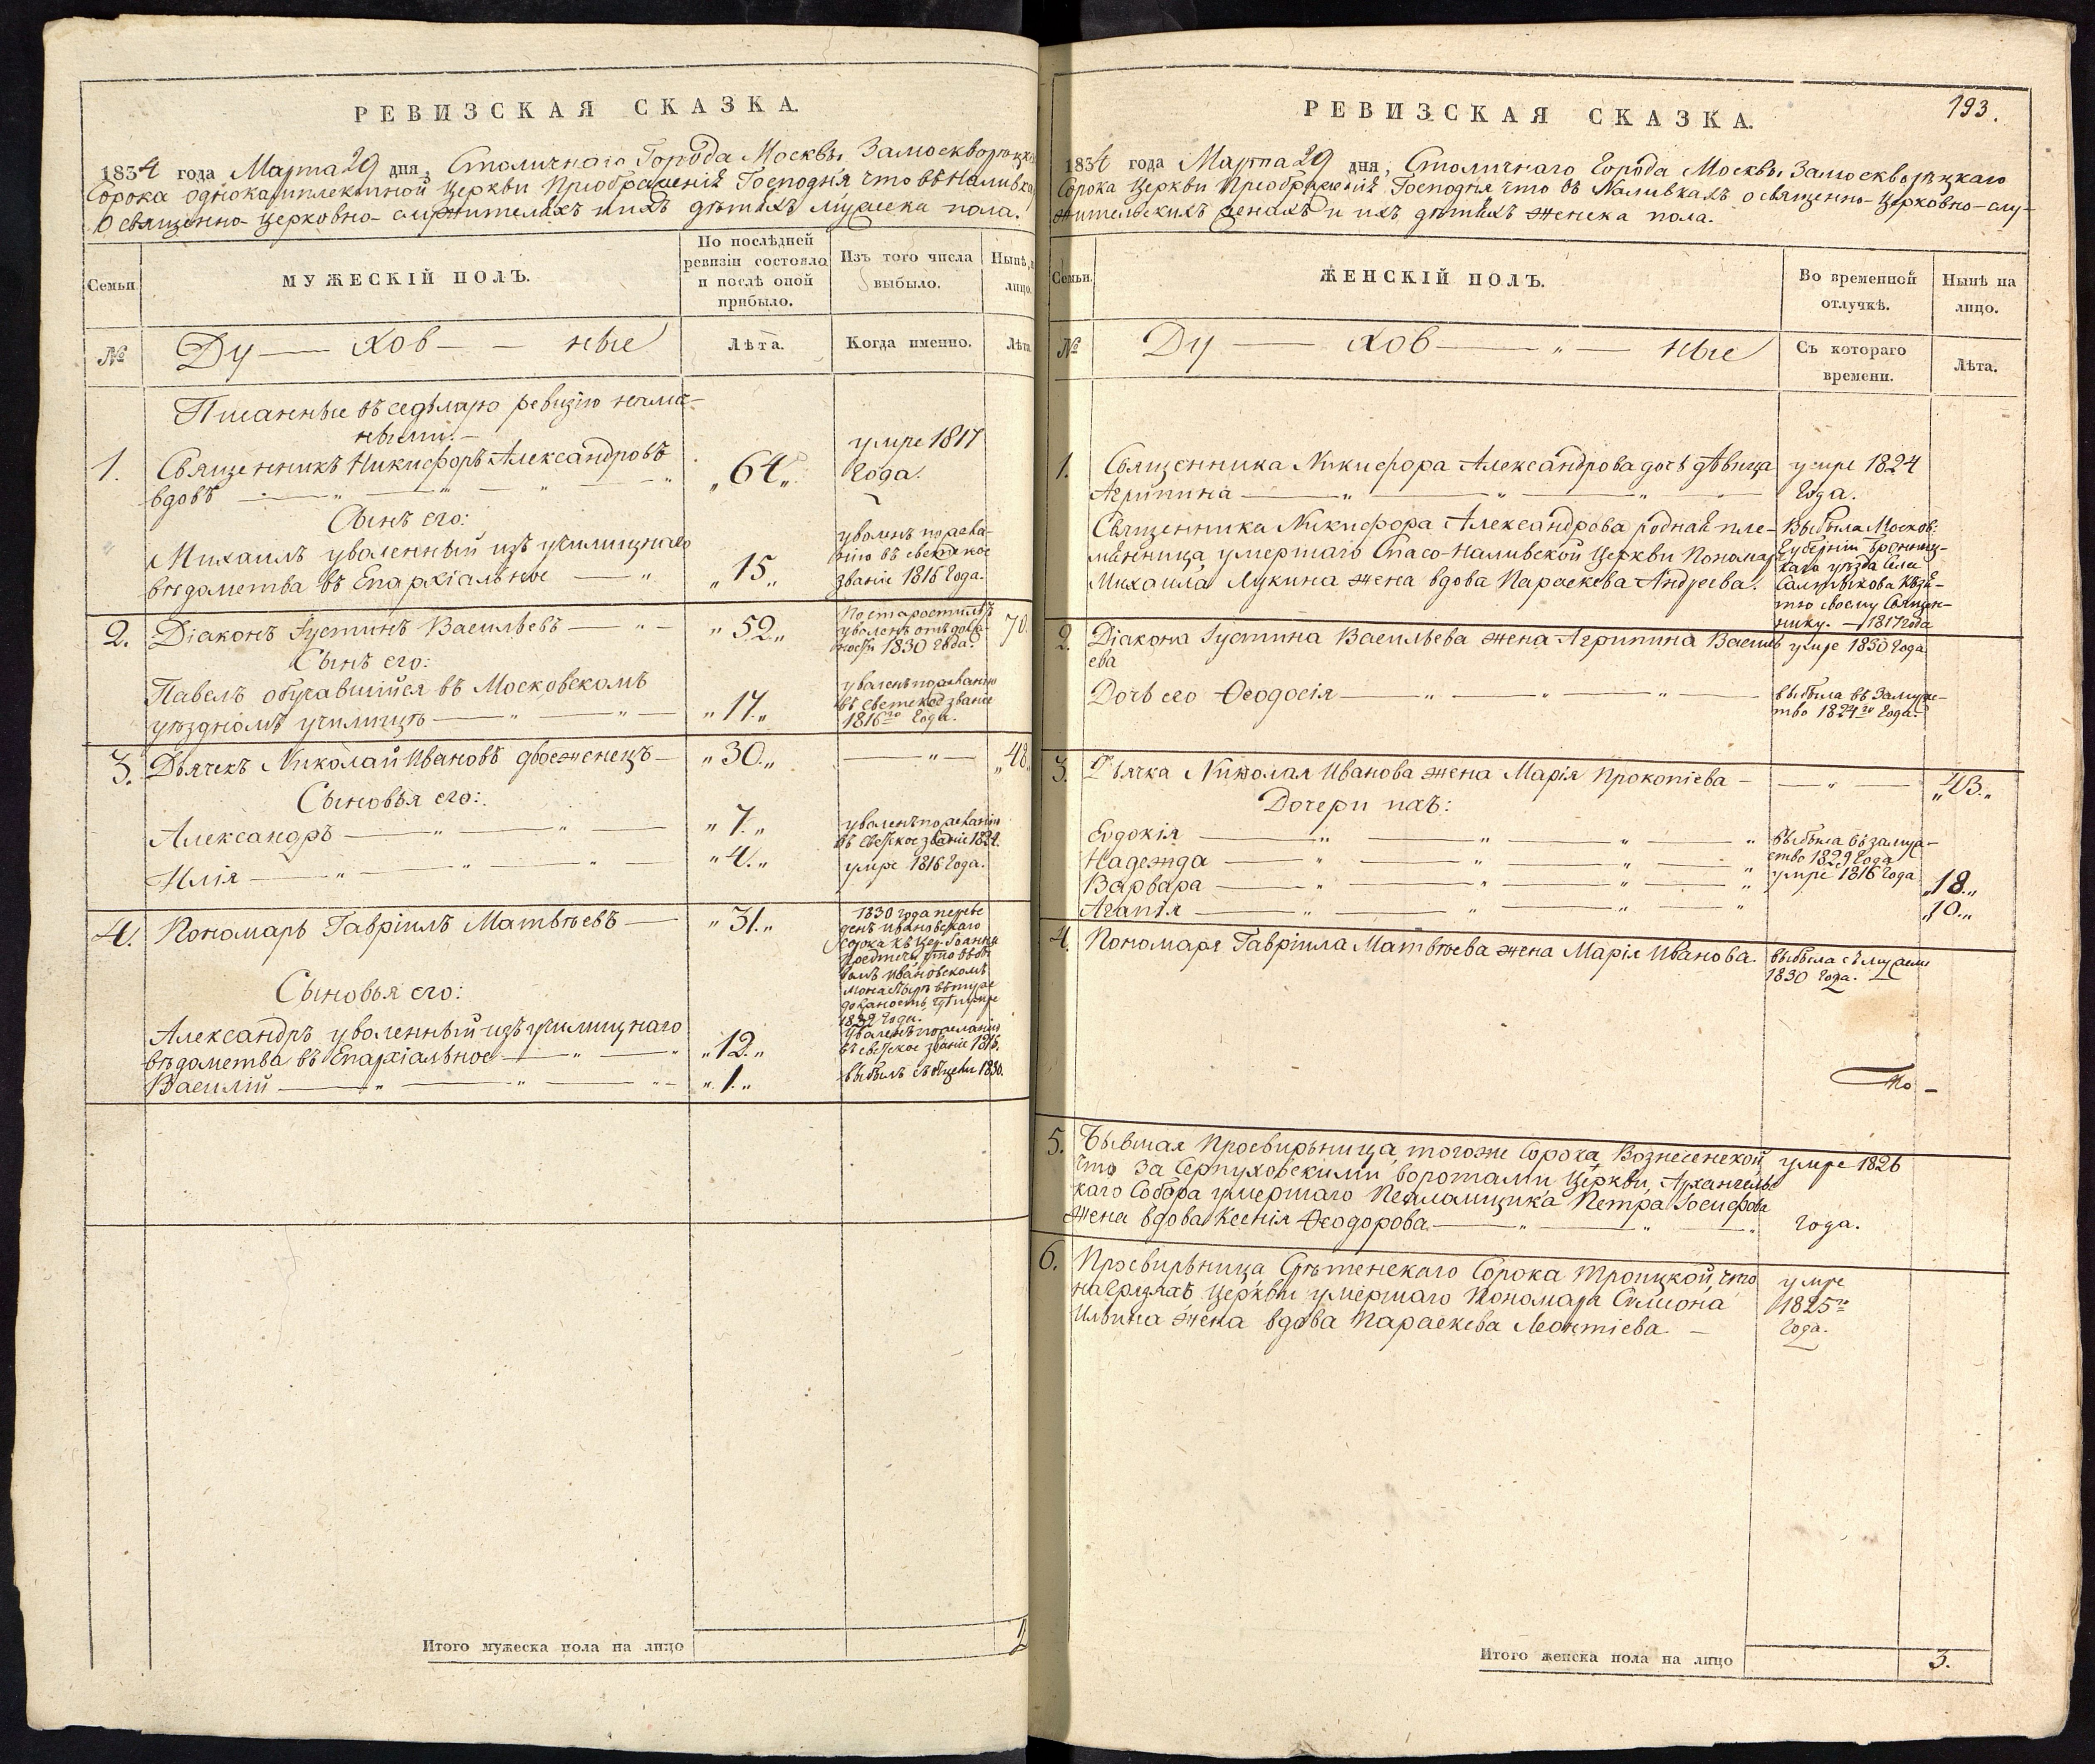 РЕВИЗСКАЯ СКАЗКА.
1834 года Марта 29 дня, Столичнаго Города Москвы Замоскворецка
Сорока однокамплектной Церкви Преображенія Господня что въ Наливка
о священно-церковно-служителяхъ и ихъ дѣтяхъ мужеска пола.
Семьи.
МУЖЕСКІЙ ПОЛЪ.
По послѣдней
ревизіи состояло
и послѣ оной
прибыло.
Изъ того числа
выбыло.
Нынѣ
лицо.
№
Ду — хов — ные
Лѣта.
Когда именно.
Лѣта
Писанные въ седьмую ревизію
1. Священникъ Никифоръ Александровъ
вдовъ
„64„
умре 1817
Года.
Сынъ его:
Михаилъ уволенный изъ училищнаго
вѣдомства въ Епархіальное
„15„
уволенъ по жела-
нію въ светское
званіе 1816 Года.
2. Діаконъ Іустинъ Васильевъ
„52„
По старости лѣтъ
уволенъ отъ долж-
ности 1830 Года.
70.
Сынъ его:
Павелъ обучавшійся въ Московскомъ
уѣздномъ училищѣ
„17„
уволенъ по желанію
въ светское званіе
1816го Года.
3. Дьячекъ Николай Ивановъ двоеженецъ
„30„
„48„
Сыновья его:
Александръ
„7„
уволенъ по желанію
въ светское званіе 1824.
Илія
„4„
умре 1816 Года.
4. Пономарь Гавріилъ Матвѣевъ
„31„
1830 года переве
денъ Ивановскаго
Сорока къ Цер. Іоанна
Предтечи, что въ
Ивановскомъ
Монастырѣ
гдѣ и умре
Года.
Сыновья его:
Александръ уволенный изъ училищнаго
вѣдомства въ Епархіальное
„12„
уволенъ по желанію
въ светское званіе 1816.
Василій
„1„
выбылъ съ отцемъ 1830.
Итого мужеска пола на лицо
2
193.
РЕВИЗСКАЯ СКАЗКА.
1834 года Марта 29 дня, Столичнаго Города Москвы Замоскворѣцкаго
Сорока Церкви Преображенія Господня что въ Наливкахъ о священно-церковно-слу-
жительскихъ женахъ и ихъ дѣтяхъ женска пола.
Семьи.
ЖЕНСКІЙ ПОЛЪ.
Во временной
отлучкѣ.
Нынѣ на
лицо.
№
Ду — хов — „ — ные
Съ котораго
времени.
Лѣта.
1. Священника Никифора Александрова дочь дѣвица
Агрипина
умре 1824
Года.
Священника Никифора Александрова родная пле-
мянница умершаго Спасо-Наливской Церкви Пономаря
Михаила Лукина жена вдова Параскева Андреева.
Выбыла Москов:
Губерніи Бронниц-
каго уѣзда Села
Салтыкова къ зя-
тю своему Священ-
нику. — 1817 года
2. Діакона Іустина Васильева жена Агрипина Василь
ева
умре 1830 Года
Дочь его Ѳеодосія
выбыла въ замуже-
тво 1824го Года.
3. Дьячка Николая Иванова жена Марія Прокопіева
„43„
Дочери ихъ:
Евдокія
выбыла въ замуж-
ство 1829 Года
Надежда
умре 1816 Года
Варвара
„18„
Агапія
„10„
4. Пономаря Гавріила Матвѣева жена Марія Иванова.
выбыла съ мужемъ
1830 Года.
По –
5. Бывшая Просвирьница, тогоже Сорока, Вознесенской
что за Серпуховскими воротами Церкви, Архангельс
каго Собора умершаго Псаломщика Петра Іосифова
жена вдова Ксенія Ѳеодорова
умре 1826
года.
6. Просвирьница Срѣтенскаго Сорока Троицкой, что
на Грязяхъ Церкви умершаго Пономаря Симеона
Ильина жена вдова Параскева Леонтіева
умре
1825го
Года.
Итого женска пола на лицо
3.